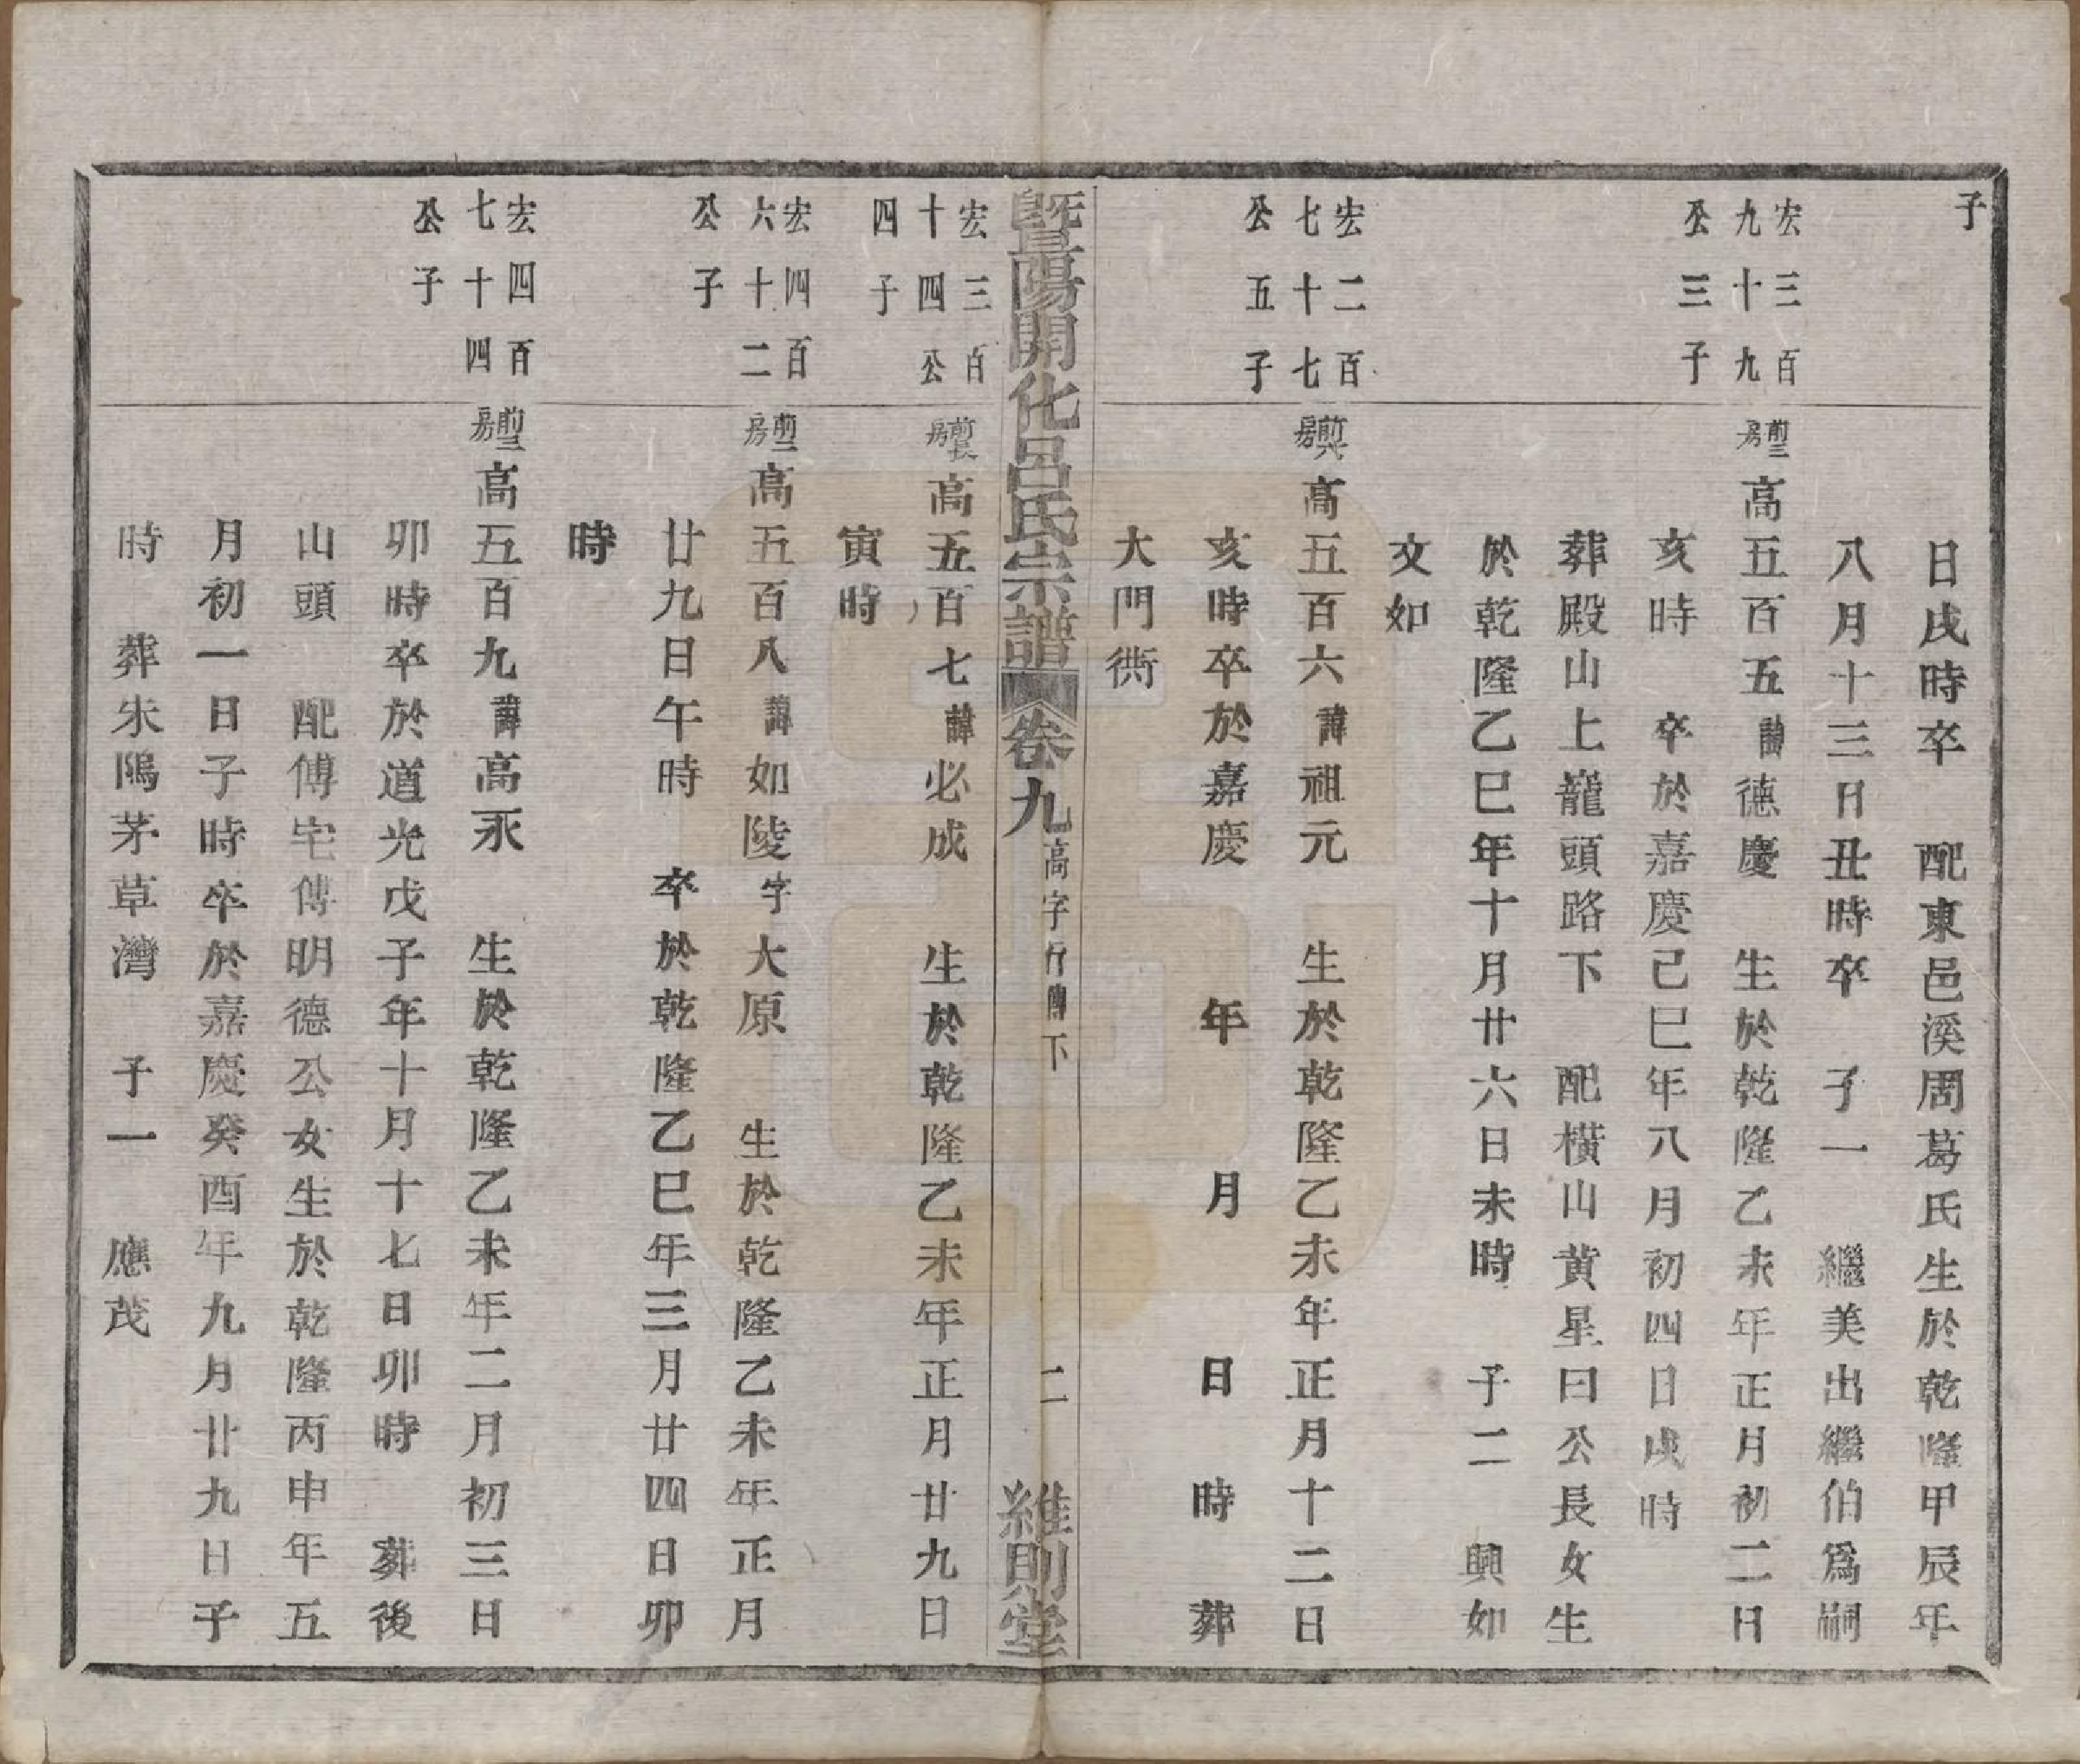 子
日戌時卒　配東邑溪周葛氏生於乾隆甲辰年
八月十三日丑時卒　子一　繼美出繼伯爲嗣
宏三百
九十九
公三子
高五百五諱德慶　生於乾隆乙未年正月初二日
亥時　卒於嘉慶己巳年八月初四日戌時
葬殿山上龍頭路下　配橫山黃星曰公長女生
於乾隆乙巳年十月廿六日未時　子二　興如
文如
宏二百
七十七
公五子
高五百六諱祖元　生於乾隆乙未年正月十二日
亥時卒於嘉慶　年　月　日　時　葬
大門衖
暨陽開化呂氏宗譜　卷九　高字行傳下　二　維則堂
宏三百
十四公
四子
高五百七諱必成　生於乾隆乙未年正月廿九日
寅時
宏四百
六十二
公子
高五百八諱如陵字大原　生於乾隆乙未年正月
廿九日午時　卒於乾隆乙巳年三月廿四日卯
時
宏四百
七十四
公子
高五百九諱高永　生於乾隆乙未年二月初三日
卯時卒於道光戊子年十月十七日卯時　葬後
山頭　配傅宅傅明德公女生於乾隆丙申年五
月初一日子時卒於嘉慶癸酉年九月廿九日子
時　葬朱隝茅草灣　子一　應茂